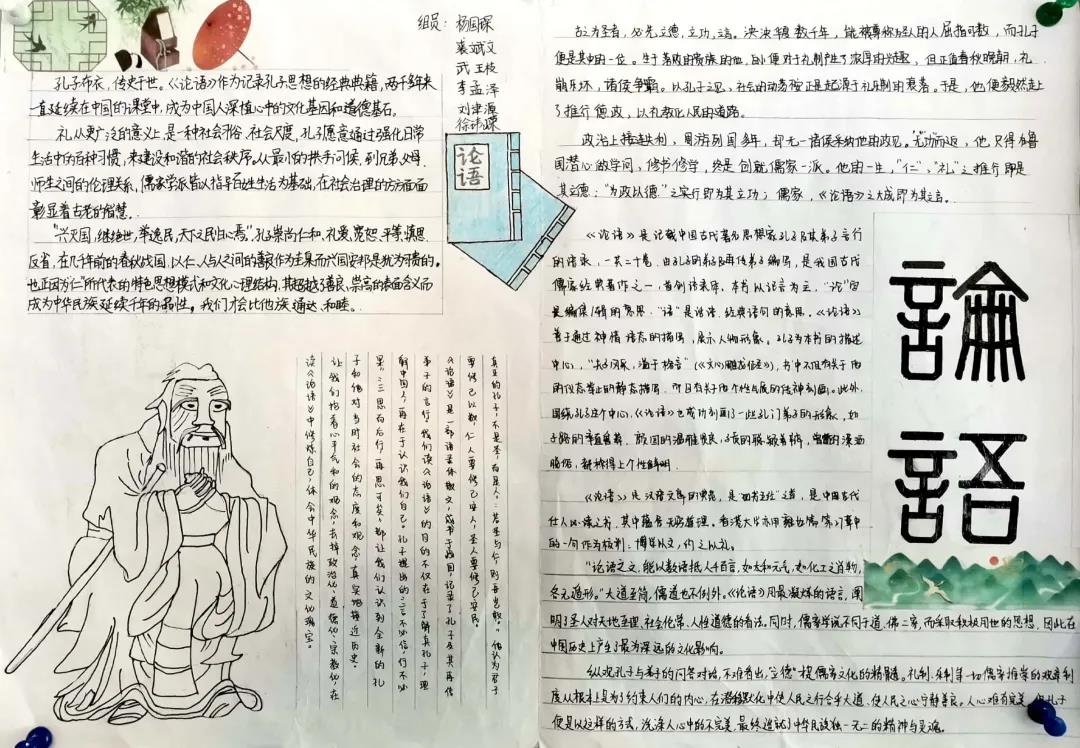 组员：杨国琛
裴斌文
武王枝
李孟泽
刘津源
徐诗璨
孔子布衣，传史千世。《论语》作为记录孔子思想的经典典籍，两千余年来
一直延续在中国的课堂中，成为中国人深植心中的文化基因和道德基石。
礼从更广泛的意义上，是一种社会习俗、社会尺度，孔子愿意通过强化日常
生活中的各种习惯，来建设和谐的社会秩序。从最小的拱手问候，到兄弟、父母、
师生之间的伦理关系，儒家学派皆以指导百姓生活为基础，在社会治理的方方面面
彰显着古老的智慧。
“兴灭国，继绝世，举逸民，天下之民归心焉。”孔崇尚仁和、礼爱、宽恕、平等、慎思、
反省，在几千年前的春秋战国，以仁、人与人之间的善良作为主果而兴国安邦是犹为可贵的。
也正因为仁所代表的特色思想模式和文化心理结构，其超越了善良、崇高的表面含义而
成为中华民族延续千年的品性。我们才会比他族通达、和睦。
论
语
真正的孔子，不是圣，而是人：若圣与仁，则吾岂敢？”他认为君子
要修己以敬，仁人要修己安人，圣人要修己安百民。
《论语》是一部语录体散文，成书于战国，记录了孔子及其再传
弟子的言行。我们读《论语》的目的不仅在于了解真孔子，理
解中国人，再在于认识我们自己。孔子提出的：言不必信，行不必
果，三思而后行，再思可矣，都让我们认识到全新的孔
子和他对当时社会的态度和观念，真实地接近历史。
让我们抱着心平气和的观念，去掉政治化、道德化、宗教化，在
读《论语》中修炼自己，体会中华民族的文化瑰宝。
古之为圣者，必先立德，立功，立言。泱泱华夏数千年，能被尊称为圣人的人屈指可数，而孔子
便是其中的一位。生于落败的贵族的他，自小便对于礼制产生了浓厚的兴趣，但正值春秋晚期，礼
崩乐坏，诸侯争霸。以孔子之见，社会的动荡应正是起源于礼乐制的衰落。于是，他便毅然走上
了推行德政，以礼教化人民的道路。
政治上接连失利，周游列国多年，却无一诸侯采纳他的政见。“无”功而返，他，只得为鲁
国潜心做学问，修书修学，终是创就儒家一派。他的一生，“仁”、“礼”之推行即是
其立德；“为政以德”之实行即为其立功；儒家，《论语》之大成即为其立言。
《论语》是记载中国古代著名思想家孔子及其弟子言行
的语录，一共二十卷，由孔子的弟子及再传弟子编写，是我国古代
儒家经典著作之一，首创语录体。本书以记言为主，“论”的
是编集/辑的意思，“语”是话语，经典语句的意思。《论语》
善于通过神情语态的描写，展示人物形象。孔子为本书的描述
中心，“夫子风采，溢于格言”（《文心雕龙·征圣》），书中不仅有关于他
的仪态举止的静态描写，而且有关于他个性气质的传神刻画。此外，
围绕孔子这个中心，《论语》也成功刻画了一些孔门弟子的形象，如
子路的率直鲁莽，颜回的温雅贤良，子贡的聪颖善辩，曾皙的潇洒
脱俗，都称得上个性鲜明。
《论语》是汉语文章的典范，是“四书五经”之首，是中国古代
仕人必读之书，其中蕴含无穷哲理。
的一句作为校训：博学以文，约之以礼。
“论语之文，能以数语抵人千百言，如太和元气，如化工之肖物，
各无遁形。”大道至简，儒道也不例外。《论语》用最凝炼的语言，阐
明了圣人对天地至理、社会伦常、人性道德的看法。同时，儒家学说不同于道、佛二家，而采取积极用世的思想，因此在
中国历史上产生了最为深远的文化影响。
纵观孔子与弟子的问答对话，不难看出，“立德”是儒家文化的精髓。礼制、乐制等一切儒家推崇的规章制
度从根本上是为了约束人们的内心，在潜移默化中使人民之行合乎大道、使人民之心宁静善良。人心难有完美，但孔子
便是以这样的方式，洗涤人心中的不完美，最终造就了中华民族独一无二的精神与灵魂。
論
語